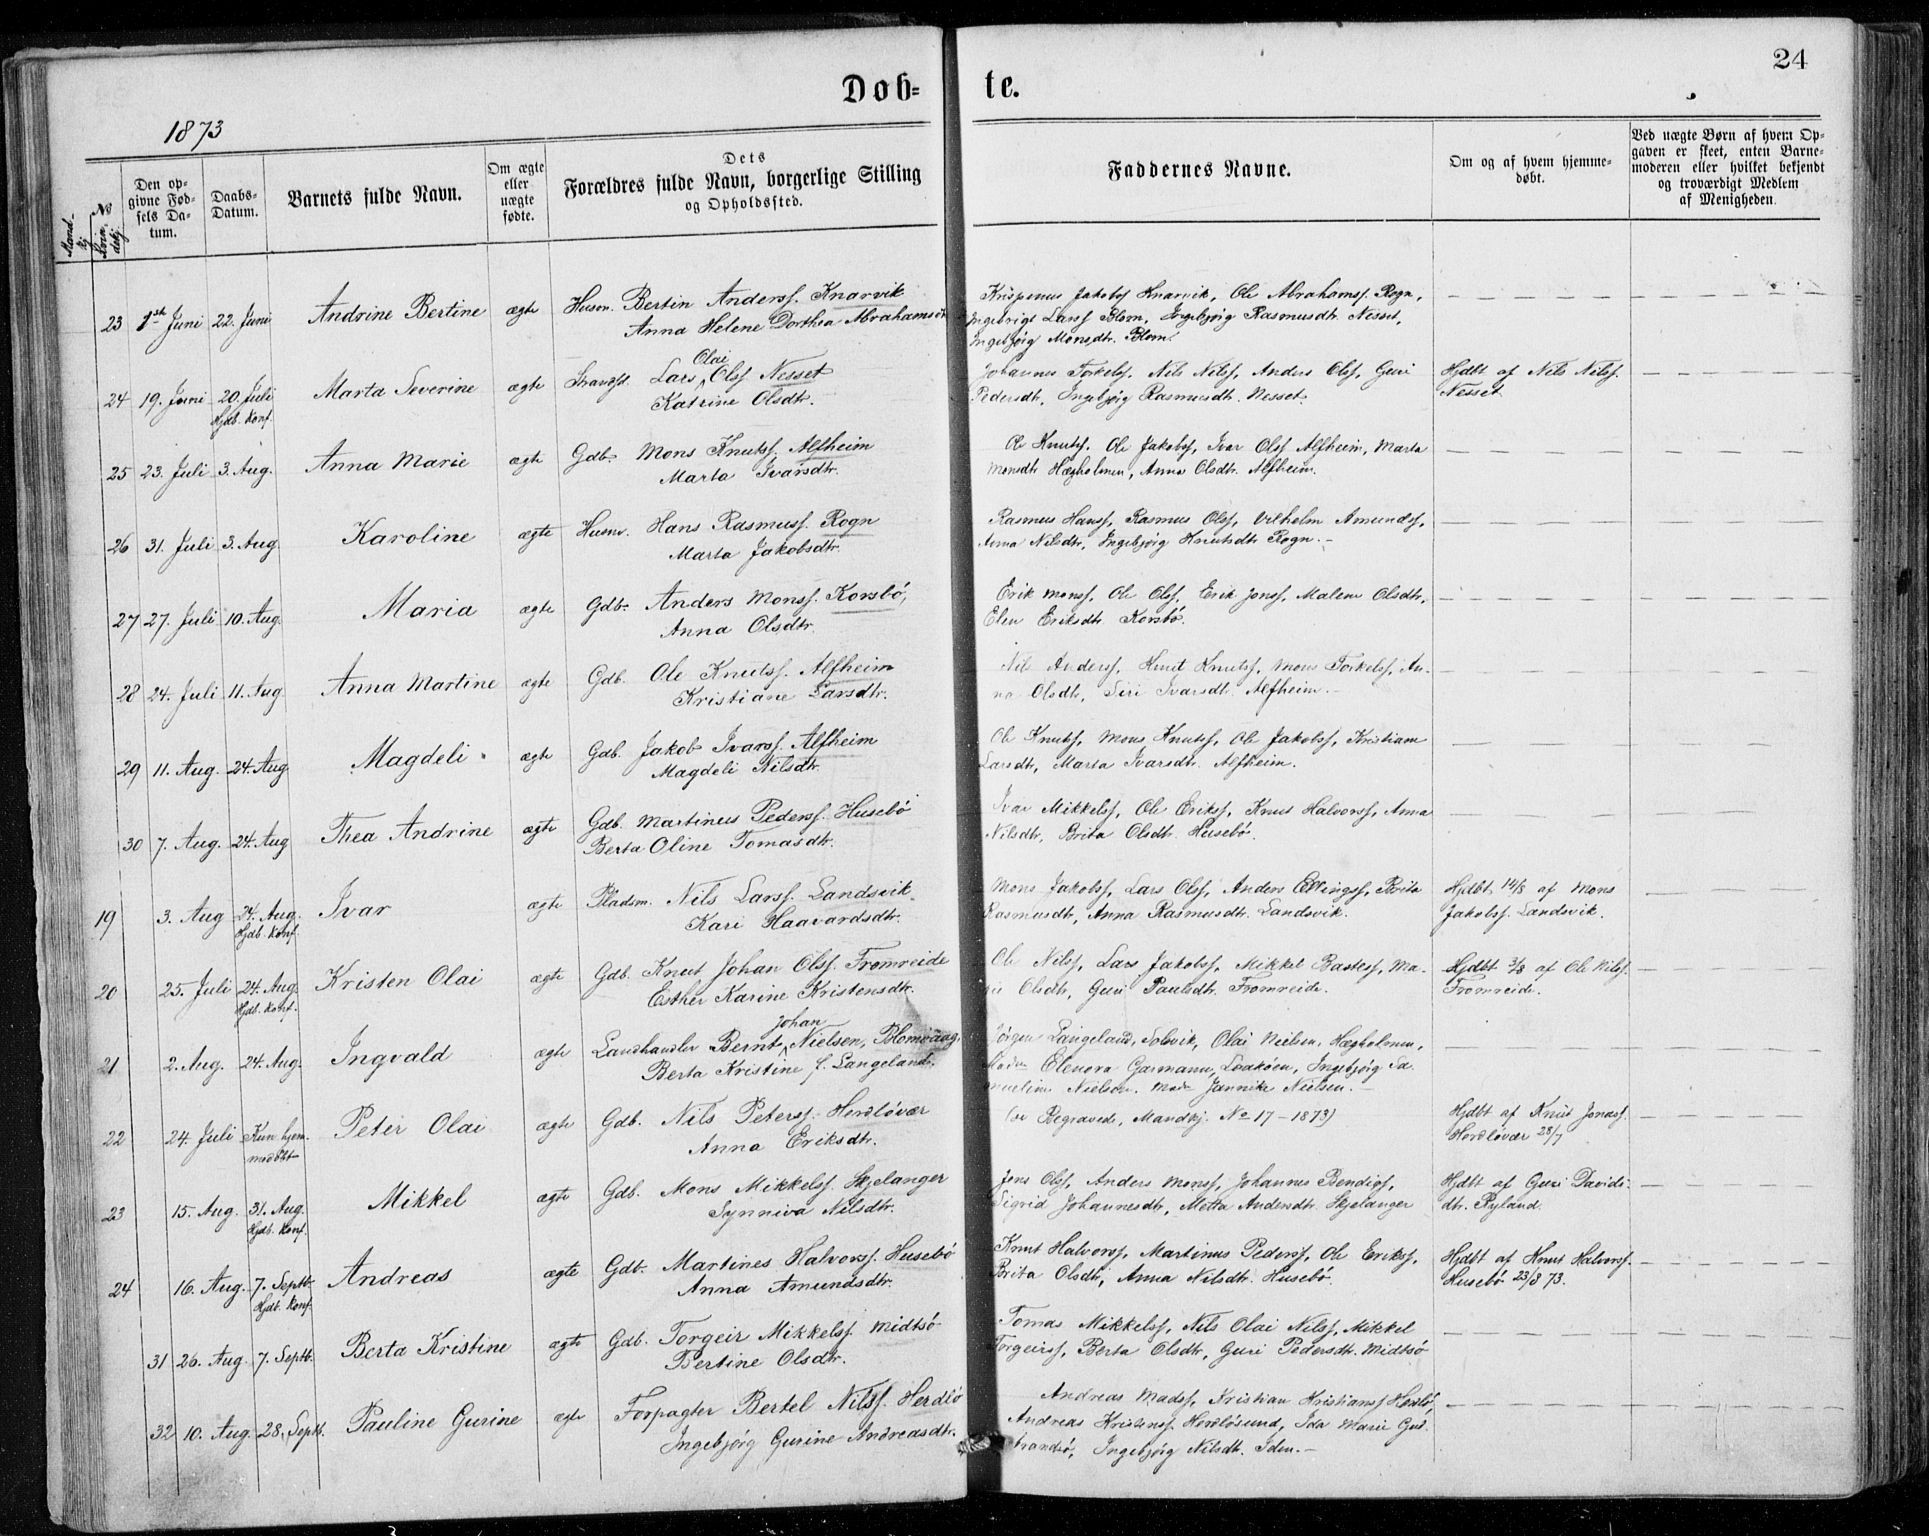 24
Døb=
te.
1873
Mand-
kj.
No
Kvin-
dekj.
Den op-
givne Fød-
sels Da-
tum.
Daabs-
Datum.
Barnets fulde Navn.
Om ægte
eller
uægte
fødte.
Dets
Forældres fulde Navn, borgerlige Stilling
og Opholdssted.
Faddernes Navne.
Om og af hvem hjemme-
døbt.
Ved uægte Børn af hvem Op-
gaven er skeet, enten Barne-
moderen eller hvilket bekjendt
og troværdigt Medlem
af Menigheden.
23 1st Juni 22. Juni Andrine Bertine ægte Husm. Bertin Anderss. Knarvik
Anna Helene Dorthea Abrahamsdt.
Krispenus Jakobs Knarvik, Ole Abrahamss. Rogn,
Ingebrigt Larss Blom, Ingebjørg Rasmusdt. Nesset,
Ingebjørg Monsdtr. Blom.
24 19. Juni 20. Juli Marta Severine ægte Strands. Lars Olai Olss Nesset
Hjdb. Konf.
Katrine Olsdtr.
Johannes Torkelss. Nils Nilss, Anders Olss, Guri
Pedersdt, Ingebjørg Rasmusdt. Nesset.
Hjdbt af Nils Nilss.
Nesset
25 23. Juli 3. Aug. Anna Marie ægte Gdb. Mons Knutss. Alfheim
Marta Ivarsdtr.
Ole Knutss. Ole Jakobss, Ivar Olss Alfheim, Marta
Monsdt Hægholmen, Anna Olsdtr. Alfheim.
26 31. Juli 3. Aug Karoline ægte Husm. Hans Rasmuss. Rogn
Marta Jakobsdtr.
Rasmus Hanss, Rasmus Olss, Vilhelm Amundss,
Anna Nilsdtr, Ingebjørg Knutsdt Rogn.–
27 27. Juli 10. Aug. Maria ægte Gdb. Anders Monss. Korsbø,
Anna Olsdtr.
Erik Monss, Ole Olss, Erik Jonss, Malene Olsdtr,
Elen Eriksdt Korsbø.
28 24. Juli 11. Aug Anna Martine ægte Gdb. Ole Knutss. Alfheim
Kristiane Larsdtr.
Nils Anderss, Knut Knutss, Mons Torkelss, An-
na Olsdt, Siri Ivarsdt. Alfheim.–
29 11. Aug. 24. Aug Magdeli ægte Gdb. Jakob Ivarss. Alfheim
Magdeli Nilsdtr.
Ole Knutss, Mons Knutss, Ole Jakobss, Kristiane
Larsdt, Marta Ivarsdt. Alfheim.
30 7. Aug. 24. Aug Thea Andrine ægte Gdb. Martinus Pederss. Husebø
Berta Oline Tomasdtr.
Ivar Mikkelss, Ole Erikss, Knut Halvorss, Anna
Nilsdt, Brita Olsdt. Husebø.
19 3. Aug 24. Aug. Ivar ægte Pladsm. Nils Larss. Landsvik
Hjdb. Konf.
Kari Haavardsdtr.
Mons Jakobss, Lars Olss, Anders Ellingss, Brita
Rasmusdt, Anna Rasmusdt. Landsvik.
Hjdbt 14/8 af Mons
Jakobss. Landsvik.
20 25. Juli 24. Aug. Kristen Olai ægte Gdb. Knut Johan Olss. Fromreide
Hjdb. Konf.
Esther Karine Kristensdtr.
Ole Nilss, Lars Jakobss, Mikkel Bastess, Ma-
rie Olsdt, Guri Paulsdt. Fromreide.
Hjdbt 3/8 af Ole Nilss.
Fromreide.
21 2. Aug. 24. Aug. Ingvald ægte Landhandler Bernt Johan Nielsen, Blomvaag.
Berta Kristine f. Langeland.
Jørgen Langeland, Solsvik, Olai Nielsen, Hægholmen,
Madm Elenora Garmann, Ingebjørg Sa-
mueline Nielsen. Mad. Jannike Nielsen.–
22 24. Juli Kun hjem- Peter Olai ægte Gdb. Nils Peterss. Herdløvær
medøbt
Anna Eriksdtr.
(se Begravede, Mandkj. No 17 – 1873)
Hjdbt af Knut Jonass.
Herdløvær 28/7
23 15. Aug. 31. Aug. Mikkel ægte Gdb. Mons Mikkelss. Skjelanger
Hjdb. Konf.
Synniva Nilsdtr.
Jens Olss, Anders Monss, Johannes Bendigs,
Sigrid Johannesdt, Metta Andersdt. Skjelanger
Hjdbt af Guri Davids-
dtr. Ryland.
24 16. Aug. 7. Septb. Andreas ægte Gdb. Martines Halvorss. Husebø
Hjdb. Konf.
Anna Amundsdtr.
Knut Halvorss, Martinus Pederss, Ole Erikss,
Brita Olsdt, Anna Nilsdt. Husebø.
Hjdbt af Knut Halvorss.
Husebø 23/8 73.
31 26. Aug. 7. Septb. Berta Kristine ægte Gdb. Torgeir Mikkelss. Midtsø
Bertine Olsdtr.
Tomas Mikkelss, Nils Olai Nilss, Mikkel
Torgeirss, Berta Olsdt, Guri Pedersdt. Midtsø
32 10. Aug. 28. Septb. Pauline Gurine ægte Forpagter Bertel Nilss. Herdlø
Ingebjørg Gurine Andreasdtr.
Andreas Madss, Kristian Kristianss Herdlø,
Andreas Kristenss, Herdløsund, Ida Marie
Ingebjørg Nilsdt. Iden.–